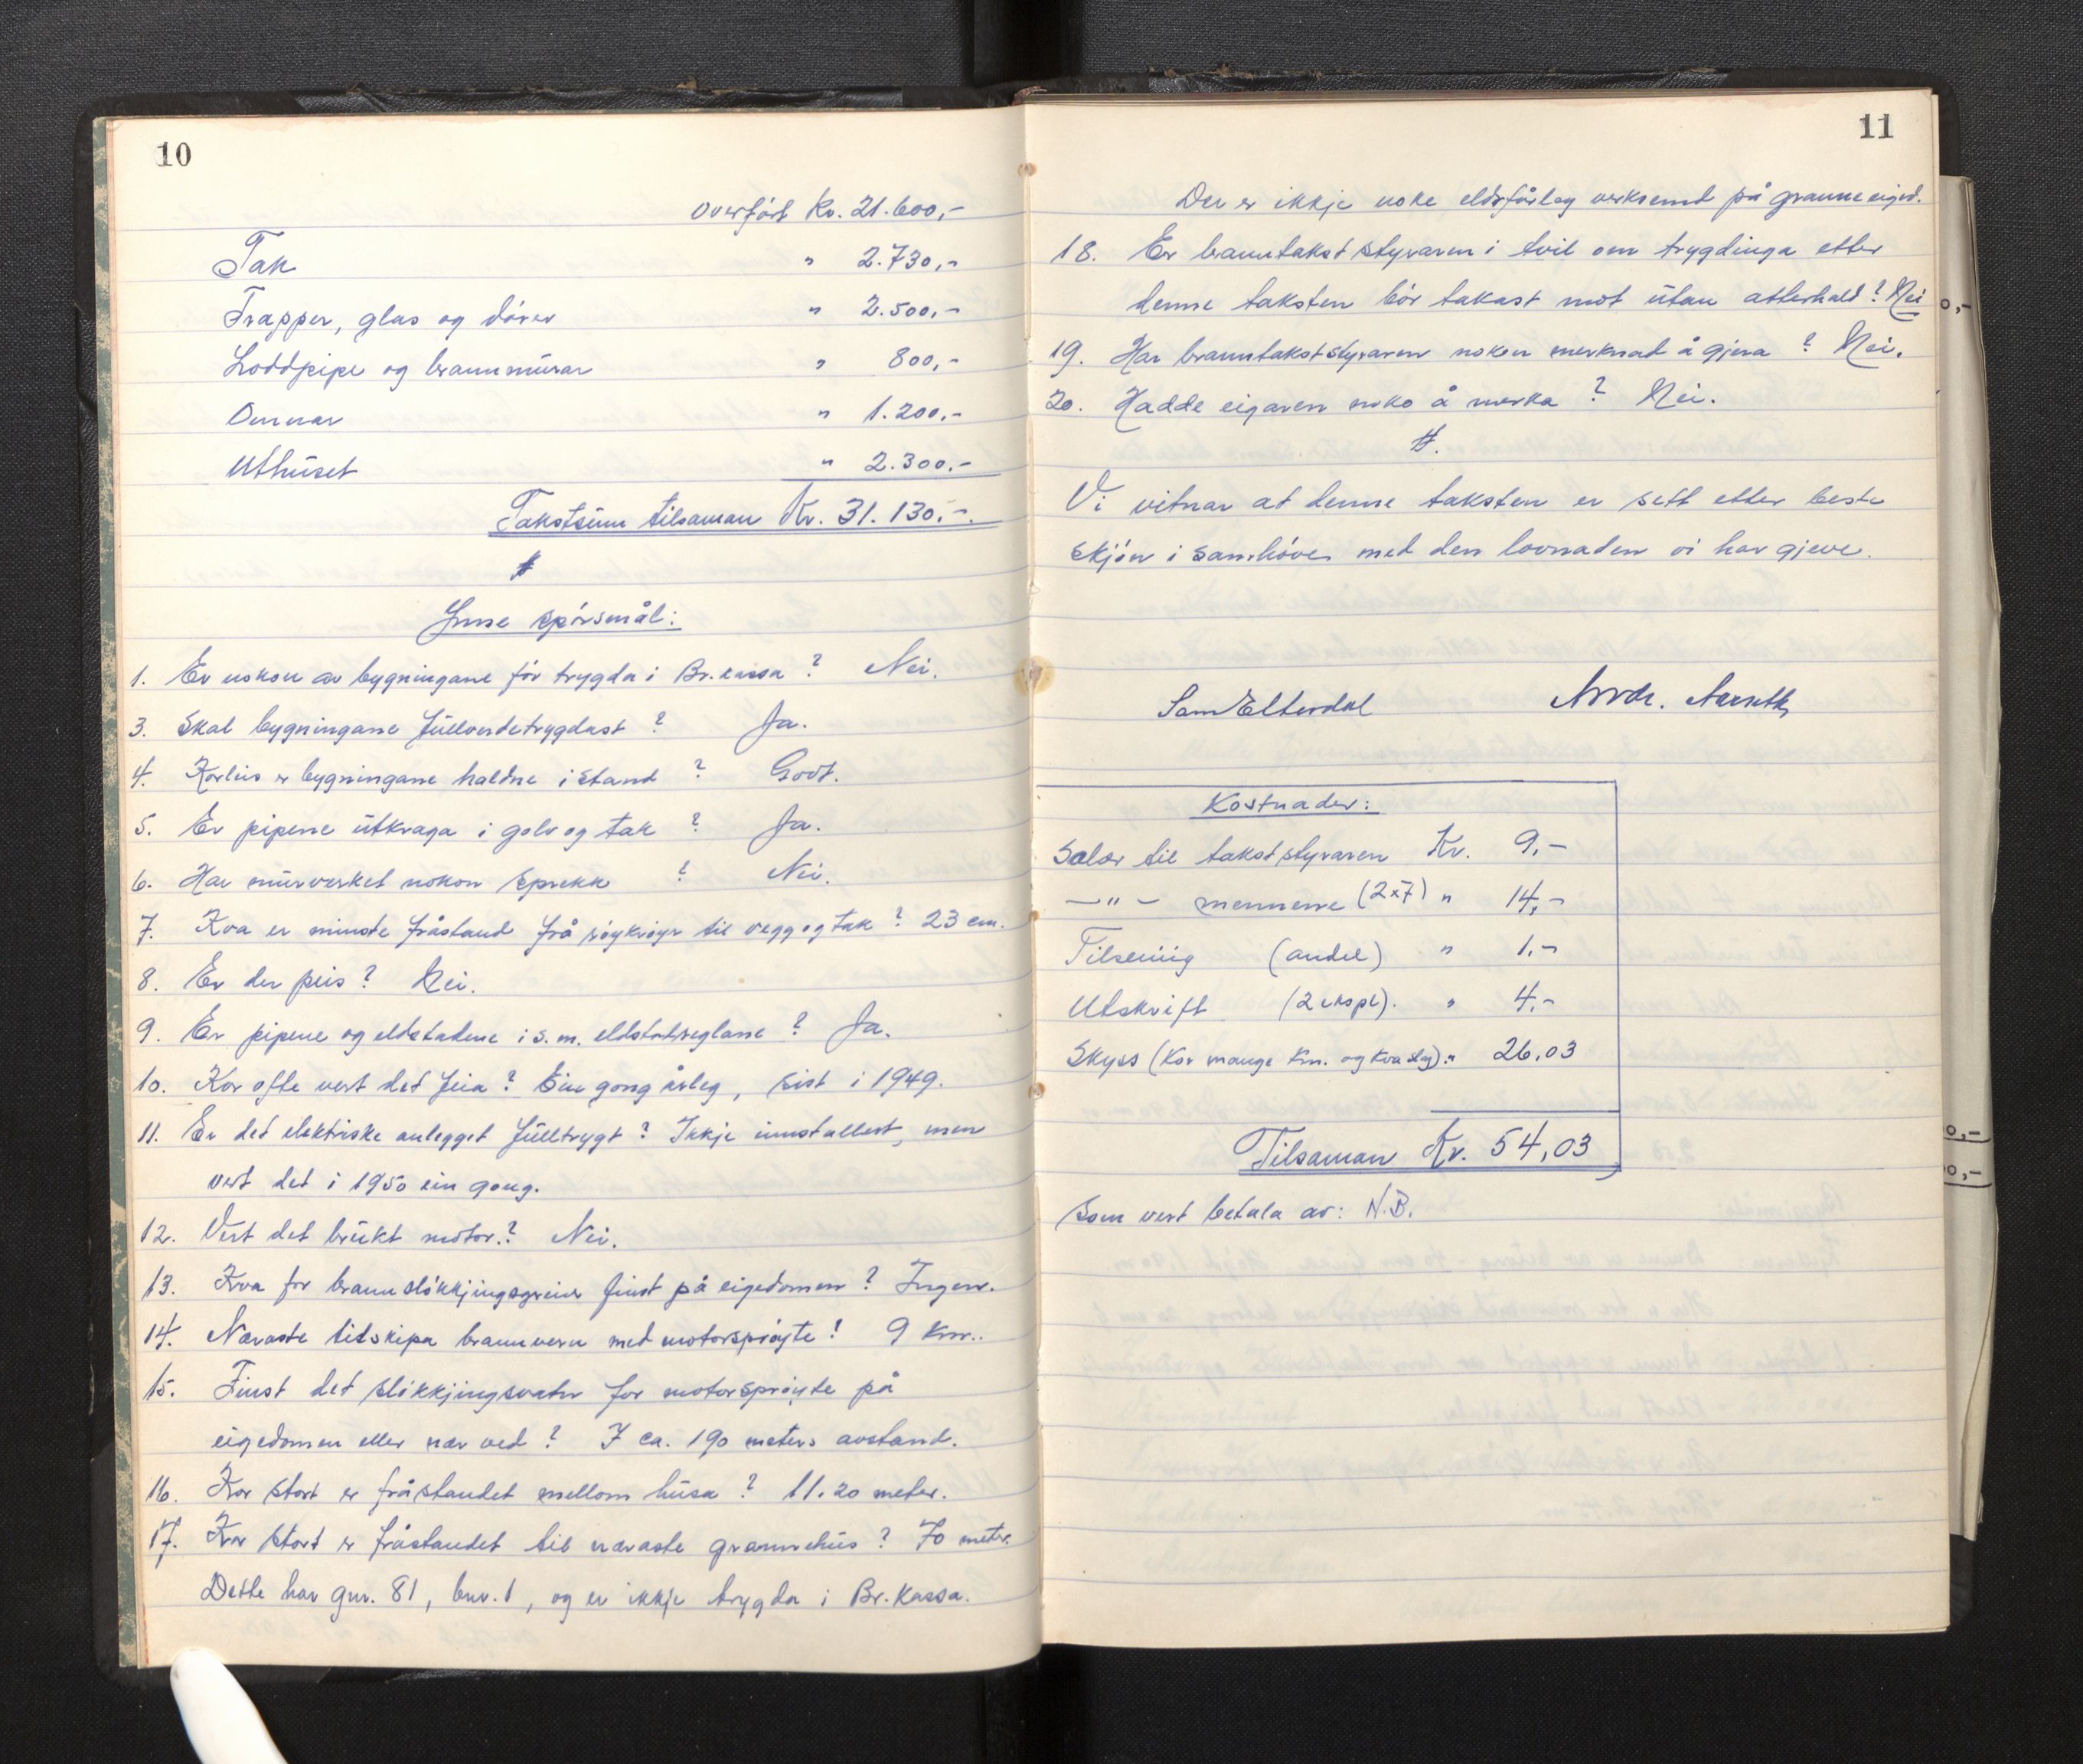 10
overført Kr. 21.600,-
Tak " 2.730,-
Trapper, glas og dører " 2.500,-
Loddpipe og brannmurar " 800,-
Omnar " 1.200,-
Uthuset " 2.300,-
Takstsum tilsaman Kr. 31.130,-.
Ymse spørsmål:
1. Er nokon av bygningane før trygda i Br.kassa? Nei.
3. Skal bygningane fullverdetrygdast? Ja.
4. Korleis er bygningane haldne i stand? Godt.
5. Er pipene utkraga i golv og tak? Ja.
6. Har murverket nokon sprekk? Nei.
7. Kva er minste fråstand frå røykrøyr til vegg og tak? 23 cm.
8. Er der peis? Nei.
9. Er pipene og eldstadene i s.m. eldstadreglane? Ja.
10. Kor ofte vert det feia? Ein gong årleg, sist i 1949.
11. Er det elektriske anlegget fulltrygt? Ikkje innstallert, men
vert det i 1950 ein gong.
12. Vert det brukt motor? Nei.
13. Kva for brannsløkkjingsgreier finst på eigedomen? Ingen.
14. Næraste tilskipa brannvern med motorsprøyte! 9 km..
15. Finst det sløkkjingsvatn for motorsprøyte på
eigedomen eller nær ved? I ca. 190 meters avstand.
16. Kor stort er fråstandet mellom husa? 11.20 meter.
17. Kor stort er fråstandet til næraste grannehus? 70 meter.
Dette har gnr. 81, bnr. 1, og er ikkje trygda i Br.kassa.
11
Der er ikkje noke eldsfårleg verksemd på granneeiged.
18. Er branntakststyraren i tvil om trygdinga etter
denne taksten bør takast mot utan atterhald? Nei
19. Har branntakststyraren nokon merknad å gjera? Nei.
20. Hadde eigaren noko å merka? Nei.
Vi vitnar at denne taksten er sett etter beste
skjøn i samhøve med den lovnaden vi har gjeve.
Sam Elterdal
Kostnader:
Salær til takststyraren Kr. 9,-
-"- mennene (2x7) " 14,-
Tilseiing (andel) " 1,-
Utskrift (2 ekspl). " 4,-
Skyss (Kor mange km. og kva slag)." 26,03
Tilsaman Kr. 54,03
Som vert betala av: N.B.